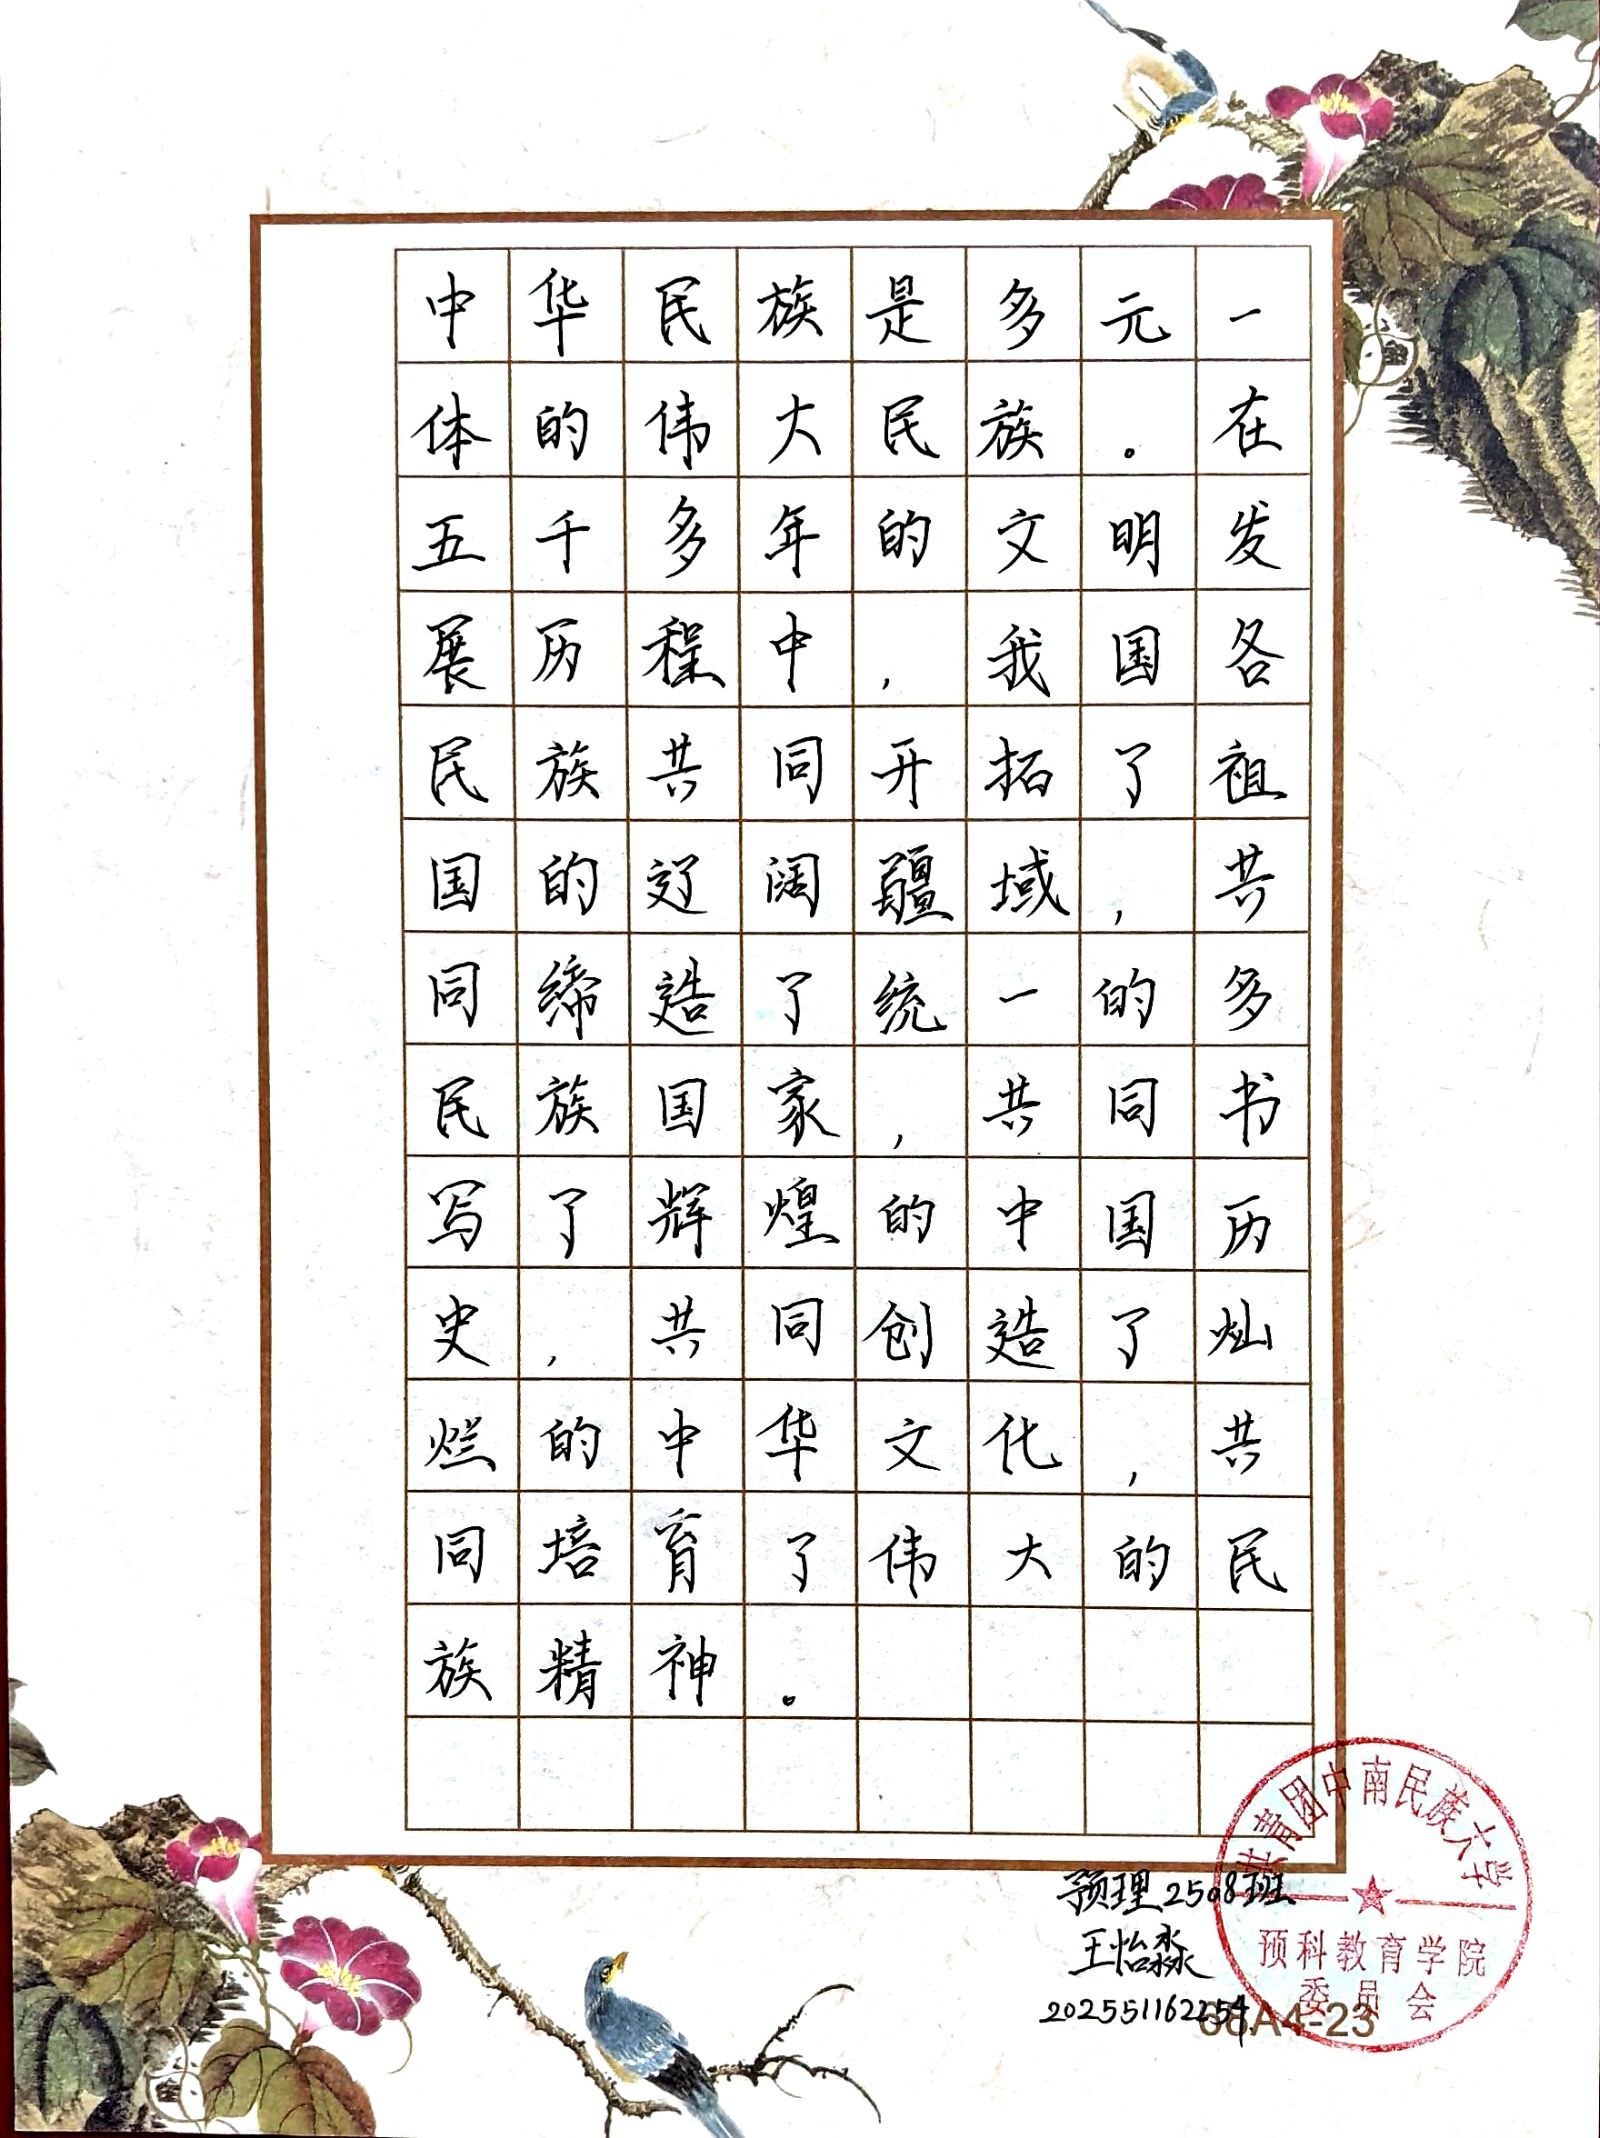 中华民族是多元一
体的伟大民族。在
五千多年的文明发
展历程中，我国各
民族共同开拓了祖
国的辽阔疆域，共
同缔造了统一的多
民族国家，共同书
写了辉煌的中国历
史，共同创造了灿
烂的中华文化，共
同培育了伟大的民
族精神。
预理2508班
王怡淼
202551162254
共青团中南民族大学
预科教育学院
委员会
68A4-23